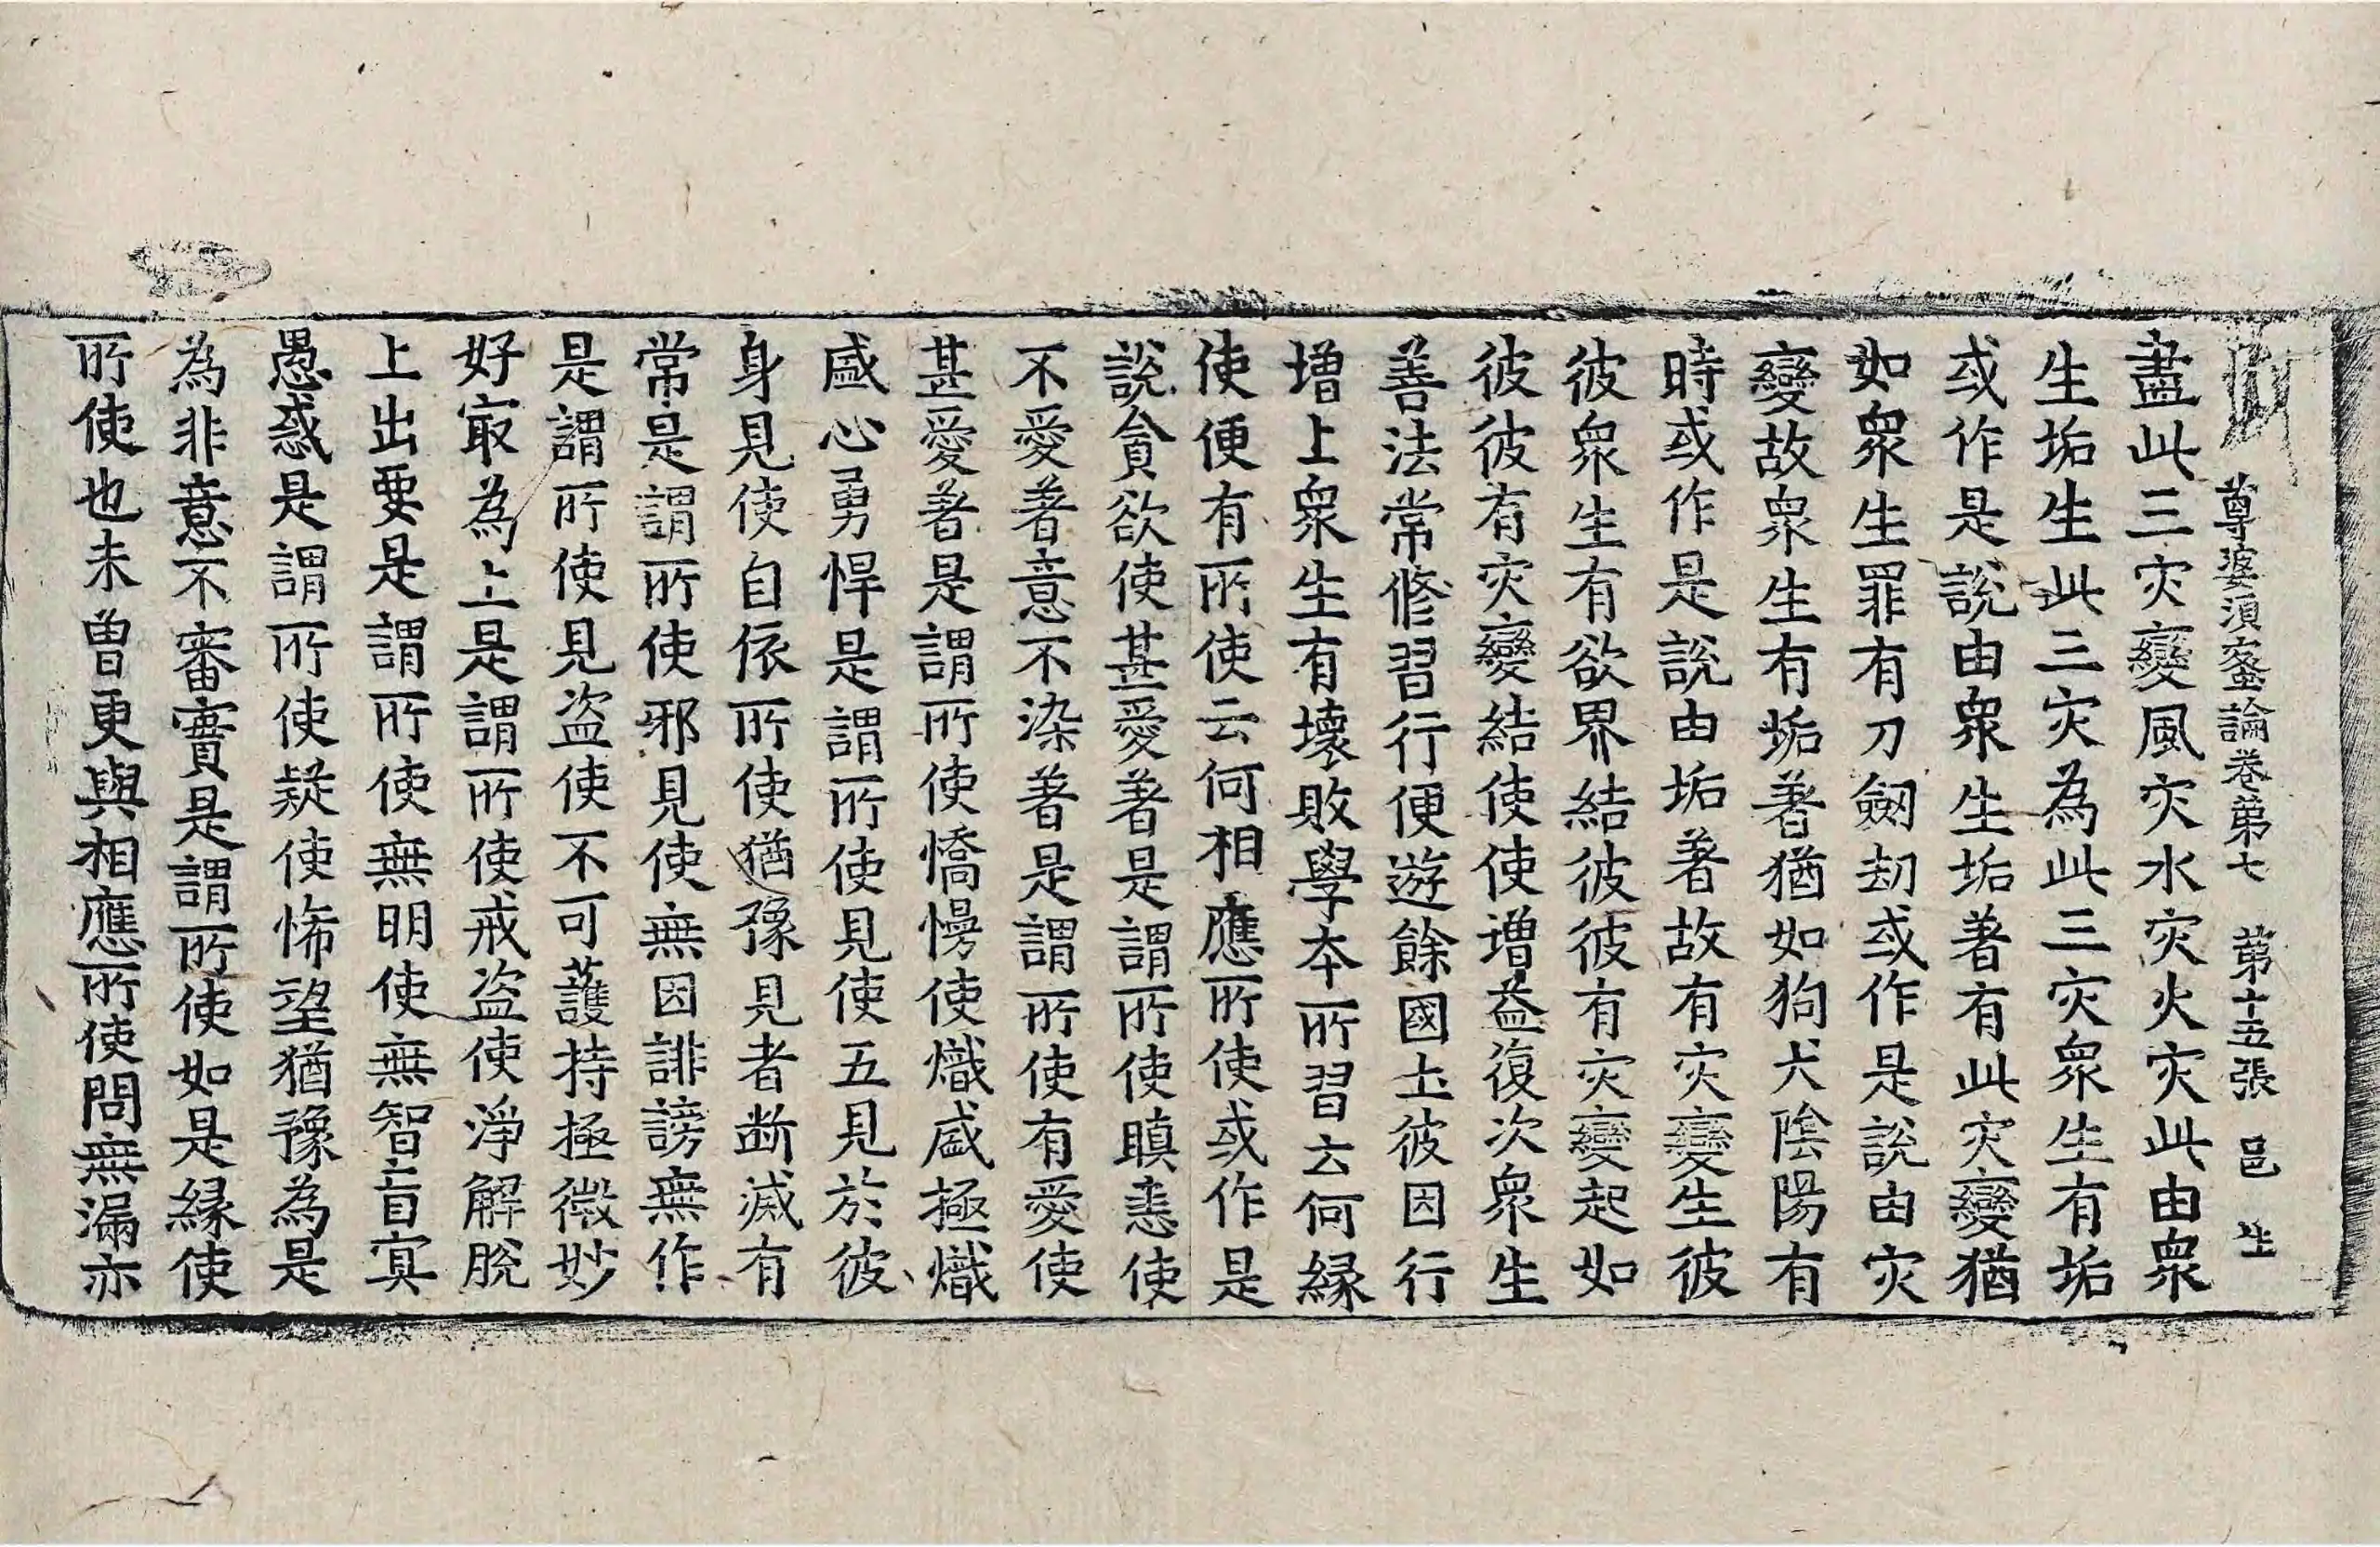 尊婆須蜜論卷第七 第十五張 邑 生
盡此三灾變風灾水灾火灾此由衆
生垢生此三灾為此三灾衆生有垢
或作是說由衆生垢著有此灾變猶
如衆生罪有刀劒劫或作是說由灾
變故衆生有垢著猶如狗犬陰陽有
時或作是說由垢著故有灾變生彼
彼衆生有欲界結彼彼有灾變起如
彼彼有灾變結使使增益復次衆生
善法常修習行便遊餘國土彼因行
增上衆生有壞敗學本所習云何緣
使便有所使云何相應所使或作是
說貪欲使甚愛著是謂所使瞋恚使
不愛著意不染著是謂所使有愛使
甚愛著是謂所使憍慢使熾盛極熾
盛心勇悍是謂所使見使五見於彼
身見使自依所使猶豫見者断滅有
常是謂所使邪見使無因誹謗無作
是謂所使見盗使不可護持極微妙
好冣為上是謂所使戒盗使淨解脫
上出要是謂所使無明使無智盲冥
愚惑是謂所使疑使悕望猶豫為是
為非意不審實是謂所使如是緣使
所使也未曽更與相應所使問無漏亦